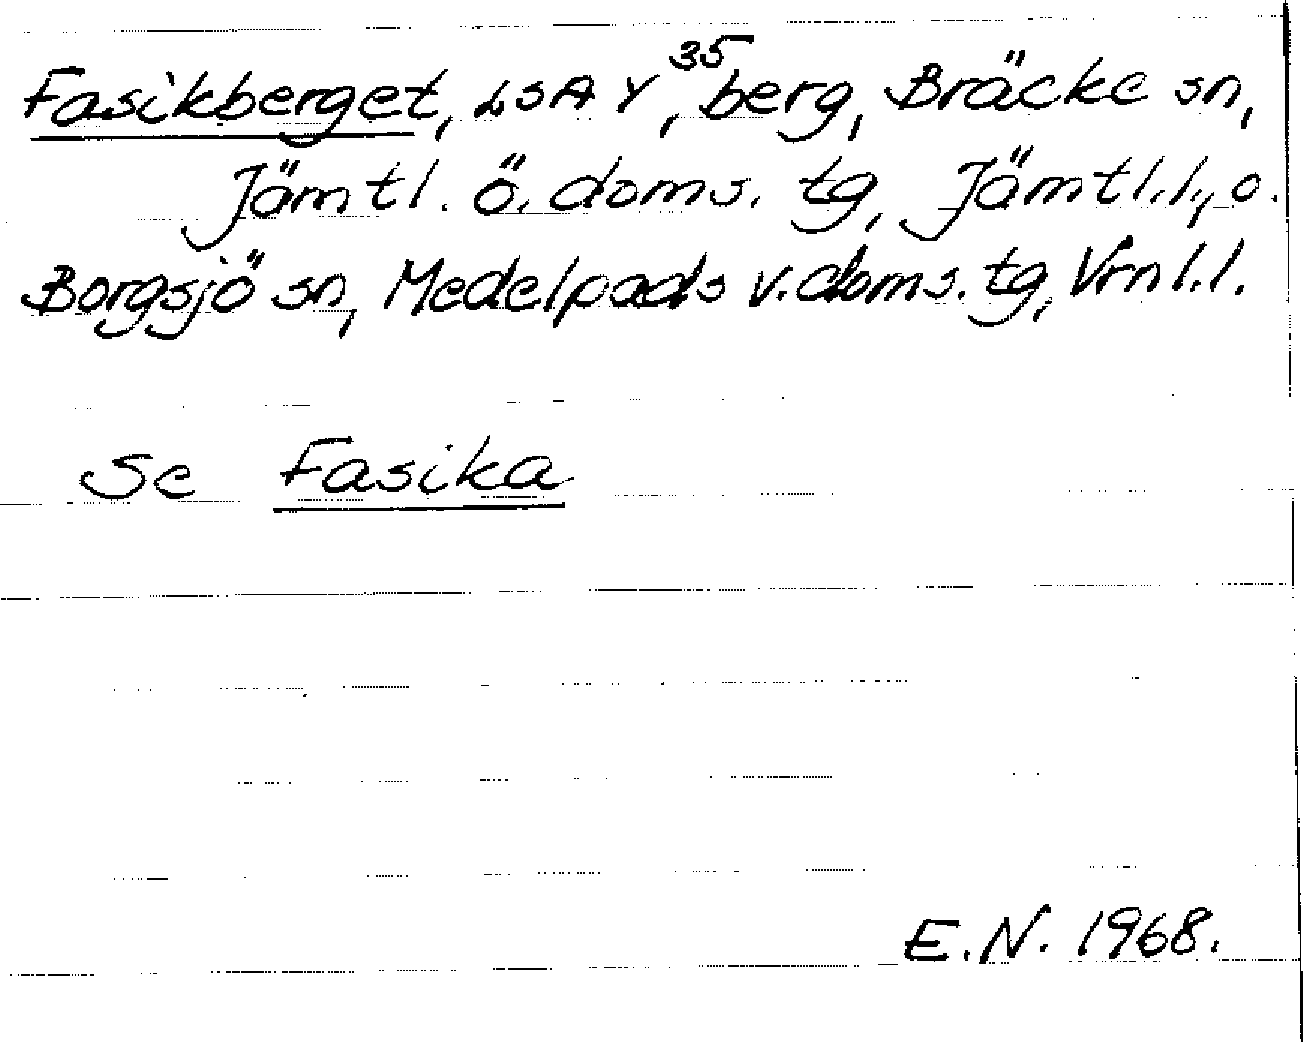 Fasikberget, LSA Y 35, berg, Bräcke sn,
Jämtl. ö. doms. tg, Jämtl.l., o.
Borgsjö sn, Medelpads v. doms. tg, Vrnl.l.
se Fasika
E.N. 1968.